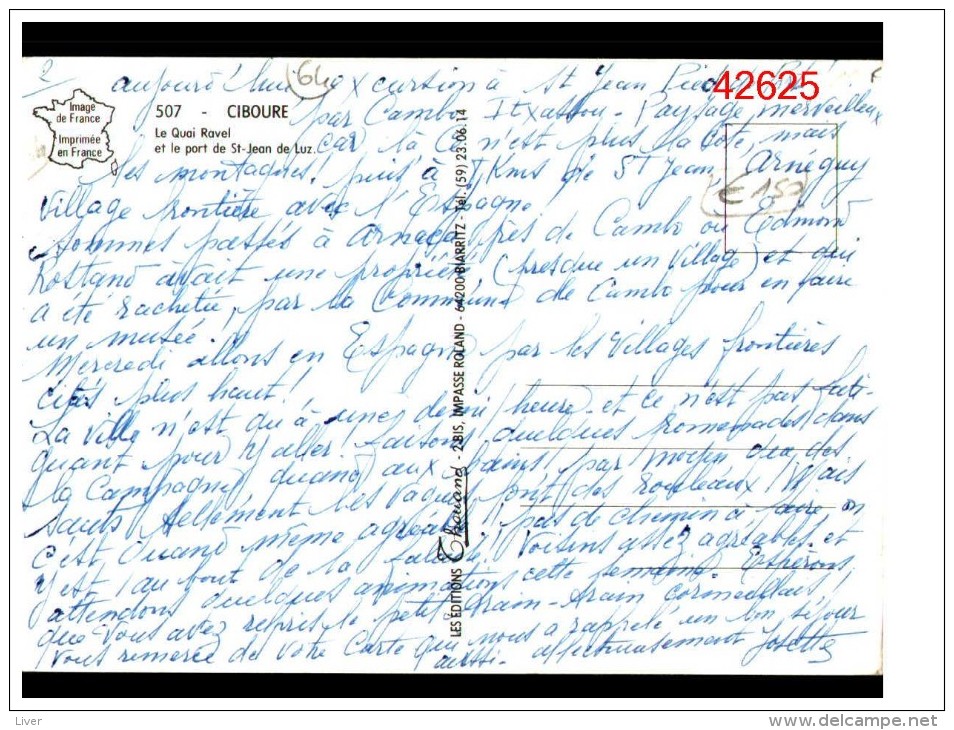 42625
2
64
aujourd'hui excursion à St Jean Pied de
507 - CIBOURE
Le Quai Ravel
et le port de St-Jean de Luz.
Image
de France
Imprimée
en France
par Cambo, Itxassou - Paysage merveilleux
car là ce n'est plus la côte, mais
les montagnes. puis à Kms de St Jean, Arnéguy
Village frontière avec l'Espagne
Sommes passés à Arnaga près de Cambo où Edmond
Rostand avait une propriété (presque un Village) et qui
a été rachetée, par la Commune de Cambo pour en faire
un musée.
Mercredi allons en Espagne par les Villages frontières
cités plus haut!
La ville n'est qu'à une demi heure et ce n'est pas fati-
quant pour y aller! Faisons quelques promenades dans
la Campagne quand aux bains, pas moyen que des
sauts tellement les vagues font des rouleaux! Mais
c'est quand même agréable! pas de chemin à faire on
y est au bout de la Voisins assez agréables et
attendons quelques animations cette semaine. Espérons
que vous avez repris le petit train-train cormeillais!
Vous remercie de votre Carte qui nous a rappelé un bon séjour
aussi - affectueusement Josette
LES ÉDITIONS Thouand - 2 BIS, IMPASSE ROLAND - 64200 BIARRITZ - Tél. (59) 23.06.14
€150
Liver
www.delcampe.net